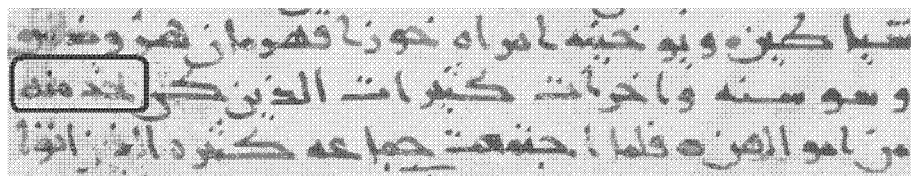 شياطين ويوحنه امراه خوزا قهرمان هيرودس
وسوسنه واخرات كثيرات الذين كن يخدمنه
من اموالهن فلما اجتمعت جماعه كثيره الذين اتوا